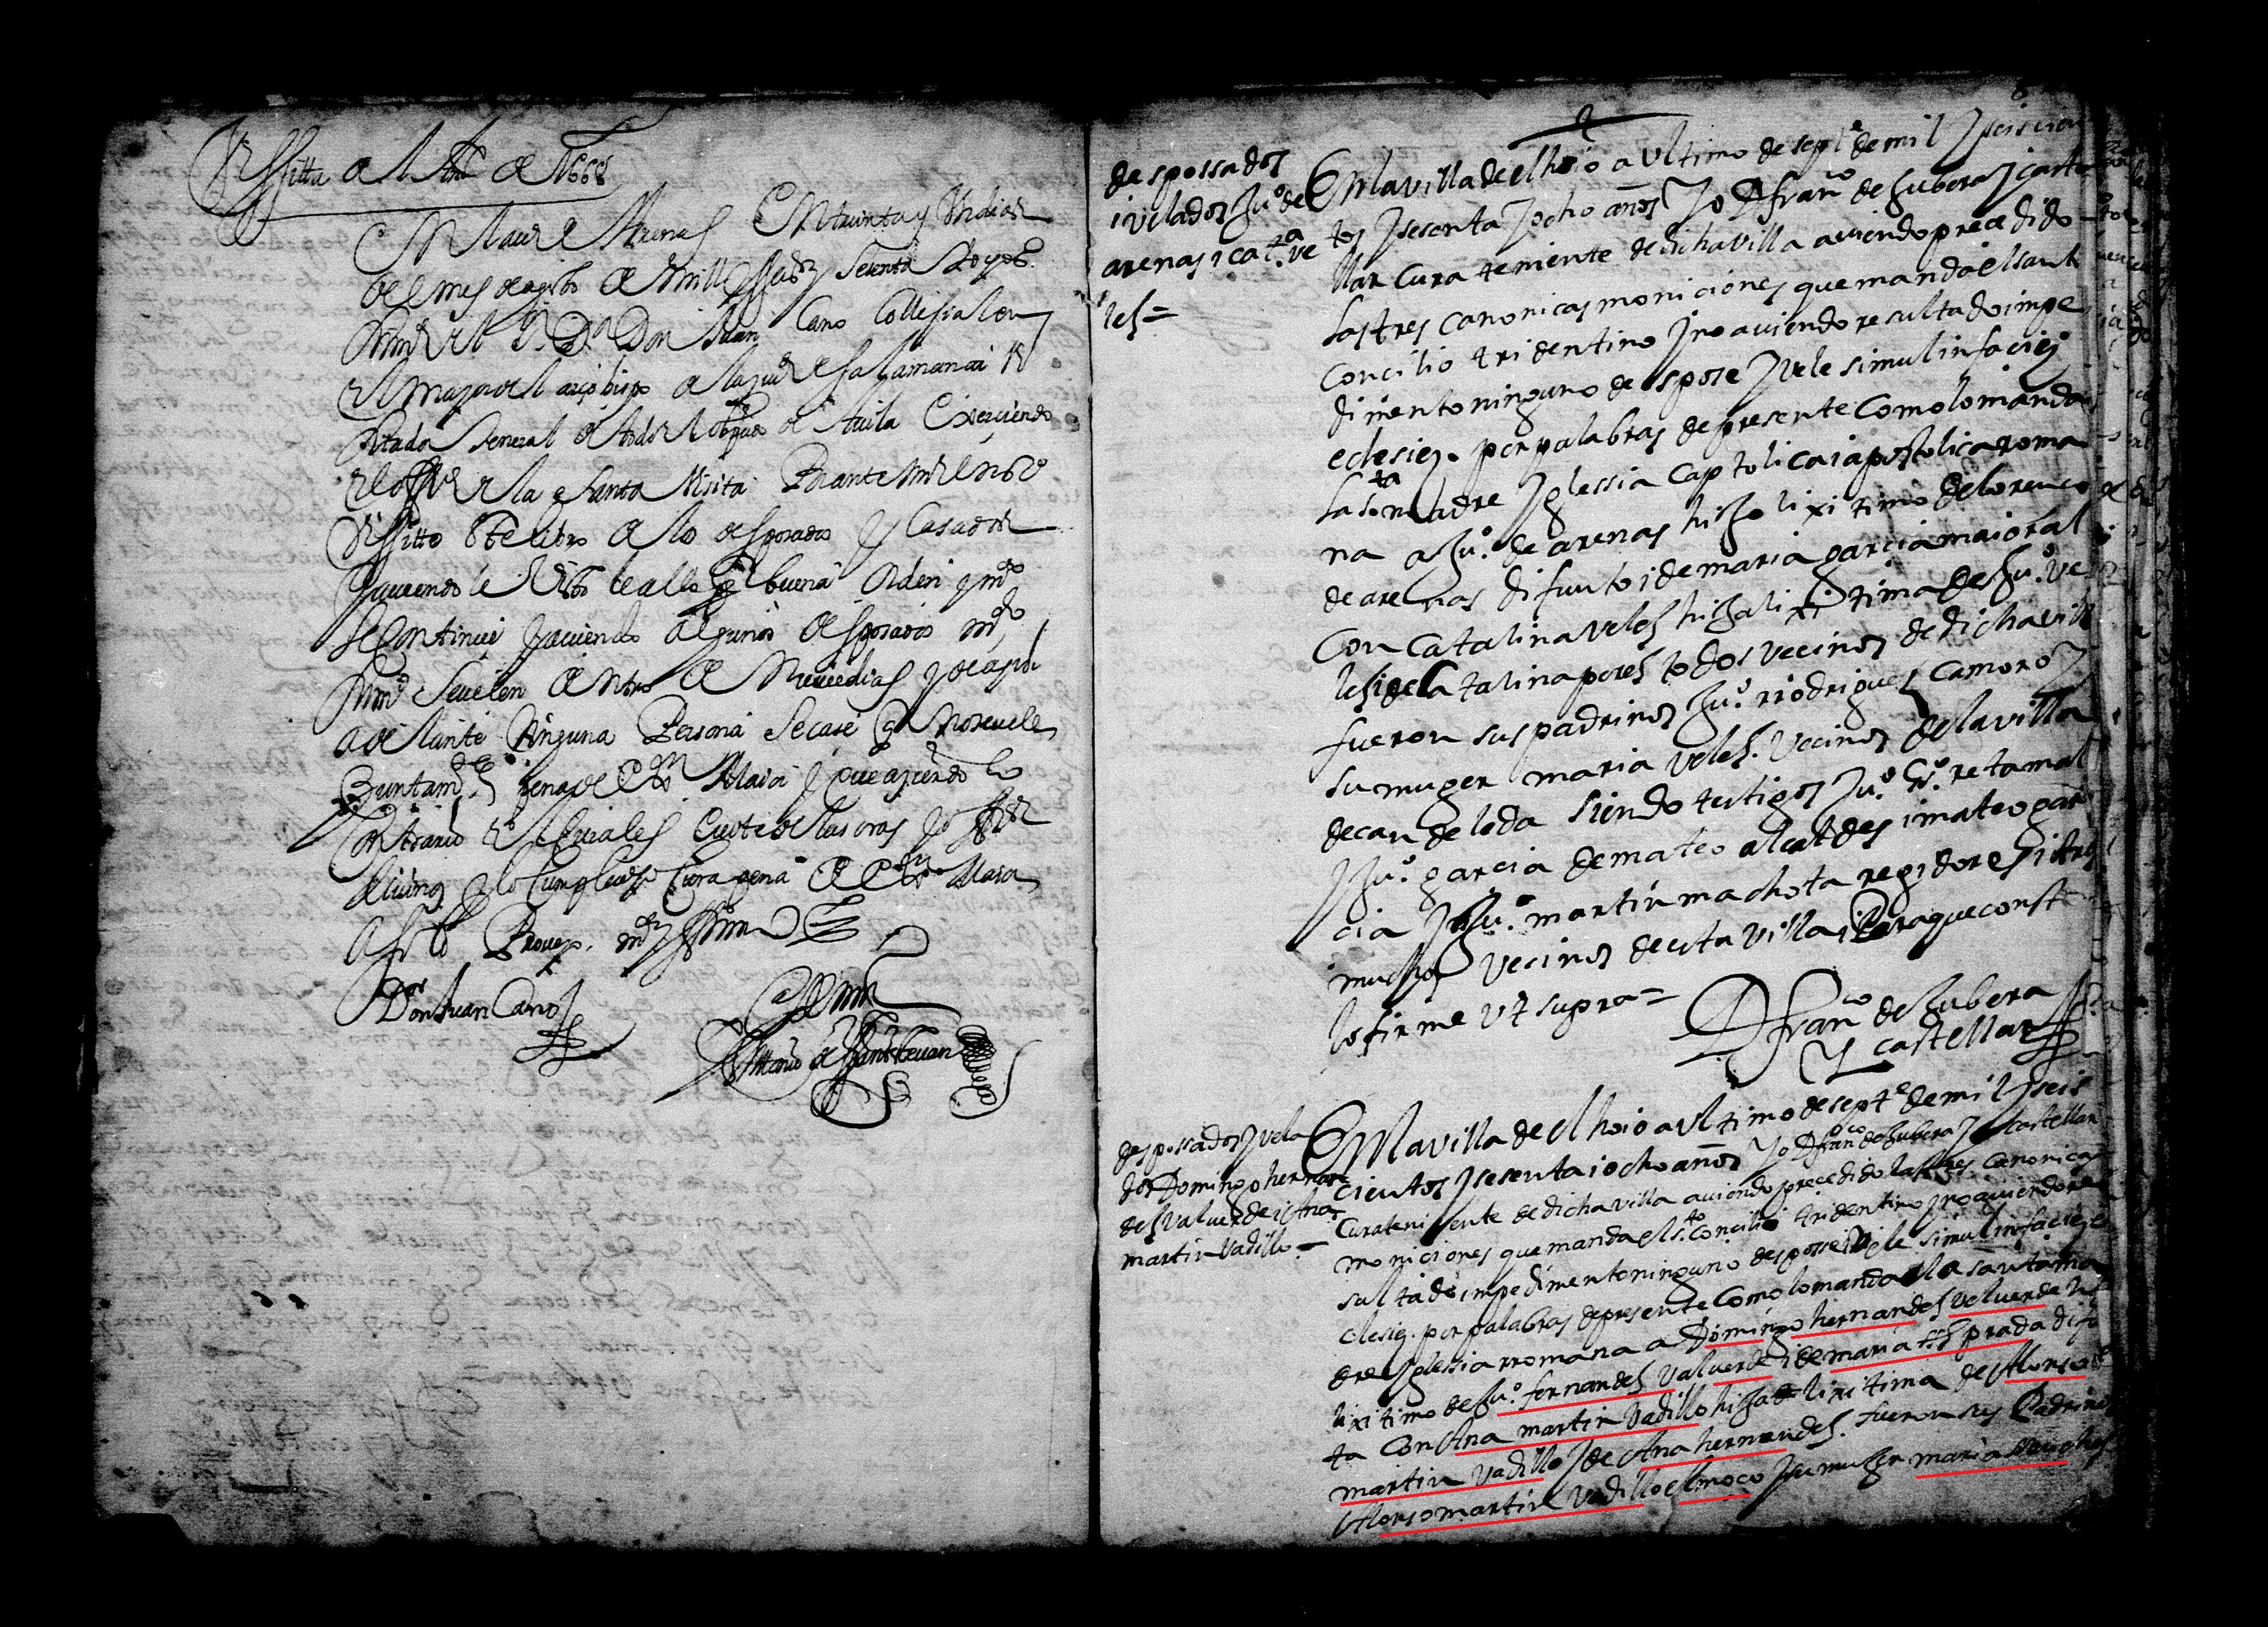 Vissitta de el Año de 1668
En la villa de Arenas En treinta y Un dias
del mes de agosto de mill y seisos sesenta y ocho
Don Juan Cano Collegial en
el mayor del arçobispo de la ciud de salamanca
General de todo el obispado de Avila Exerciendo
en la Santa Visita Por ante mi el noto
Vissitto este libro de los desposados y Casados
y aviendole Visto le allo buena orden y mdo
se Continue y aviendo algunos desposados mdo
se velen dentro de nueve dias y de aqui
adelante Ninguna Persona se case que no se vele
Juntamte pena de Exn Maior y que aciendo lo
Contrario los oficiales
Pena de Exn Maior
Assi lo Proveyo mdo y firmo
Don Juan Cano
Ante mi
Antonio de Santisteuan
2
desposados
i velados Ju.º de
arenas i cat.ta ve
les=
En la villa de el hoio a Ultimo de septe de mil y seis cien
tos y sesenta y ocho años yo D fran.co de Zubera y Caste
llar Cura teniente de dicha villa aviendo precedido
las tres canonicas moniciones que manda el santo
Concilio tridentino y no aviendo resultado impe
dimento ninguno despose y vele simul in faciez
eclesiez. por palabras de presente Como lo manda
la s.ta madre yglessia captolica i apostolica roma
na a Ju.º de arenas hijo lixitimo de lorenço
de arenas difunto i de maria garcia maioral
Con Catalina veles hija lixitima de Ju.º ve
les i de Catalina peres todos vecinos de dicha villa
fueron sus padrinos Ju.º rrodrigues Camoro y
su muger maria veles. Vecinos de la villa
de candeleda siendo testigos Ju.º retamal
y Ju.º garcia de mateo alcaldes i mateo gar
cia y Ju.º martin machota regidores i otros
muchos vecinos de esta villa i Para que conste
lo firme ut supra=
D fran.co de Zubera
y castellar
desposados y vela
dos Domingo hernan
des Valverde i Ana
martin Vadillo.=
En la villa de el hoio a Ultimo de septe de mil y seis
cientos y sesenta i ocho años yo D fran.co de Zubera y Castellar
Cura teniente de dicha villa aviendo precedido las tres canonicas
moniciones que manda el s.to Concilio tridentino y no aviendo re
sultado impedimento ninguno despose i vele simul in faciez e
clesiez. por palabras de presente Como lo manda la santa ma
dre yglessia rromana a Domingo hernandes velverde hijo
lixitimo de Ju.º fernandes Valverde i de maria prada difun
ta Con Ana martin Vadillo hija lixitima de Alonso
martin Vadillo y de Ana hernandes. fueron sus Padrinos
Alonso martin Vadillo el moco y su muger maria